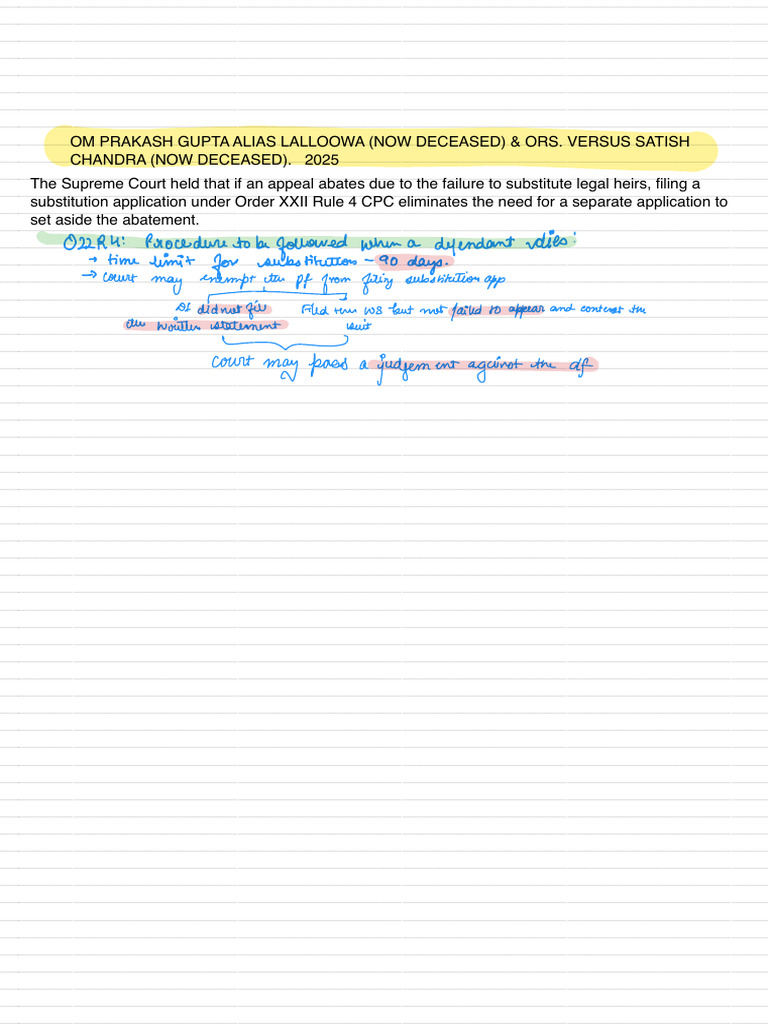 OM PRAKASH GUPTA ALIAS LALLOOWA (NOW DECEASED) & ORS. VERSUS SATISH
CHANDRA (NOW DECEASED). 2025
The Supreme Court held that if an appeal abates due to the failure to substitute legal heirs, filing a
substitution application under Order XXII Rule 4 CPC eliminates the need for a separate application to
set aside the abatement.
O22R4: Procedure to be followed when a defendant dies:
→ time limit for substitution - 90 days.
→ court may exempt the pf from filing substitution app
Df did not file Filed the WS but not failed to appear and contest the
the written statement suit
court may pass a judgement against the df